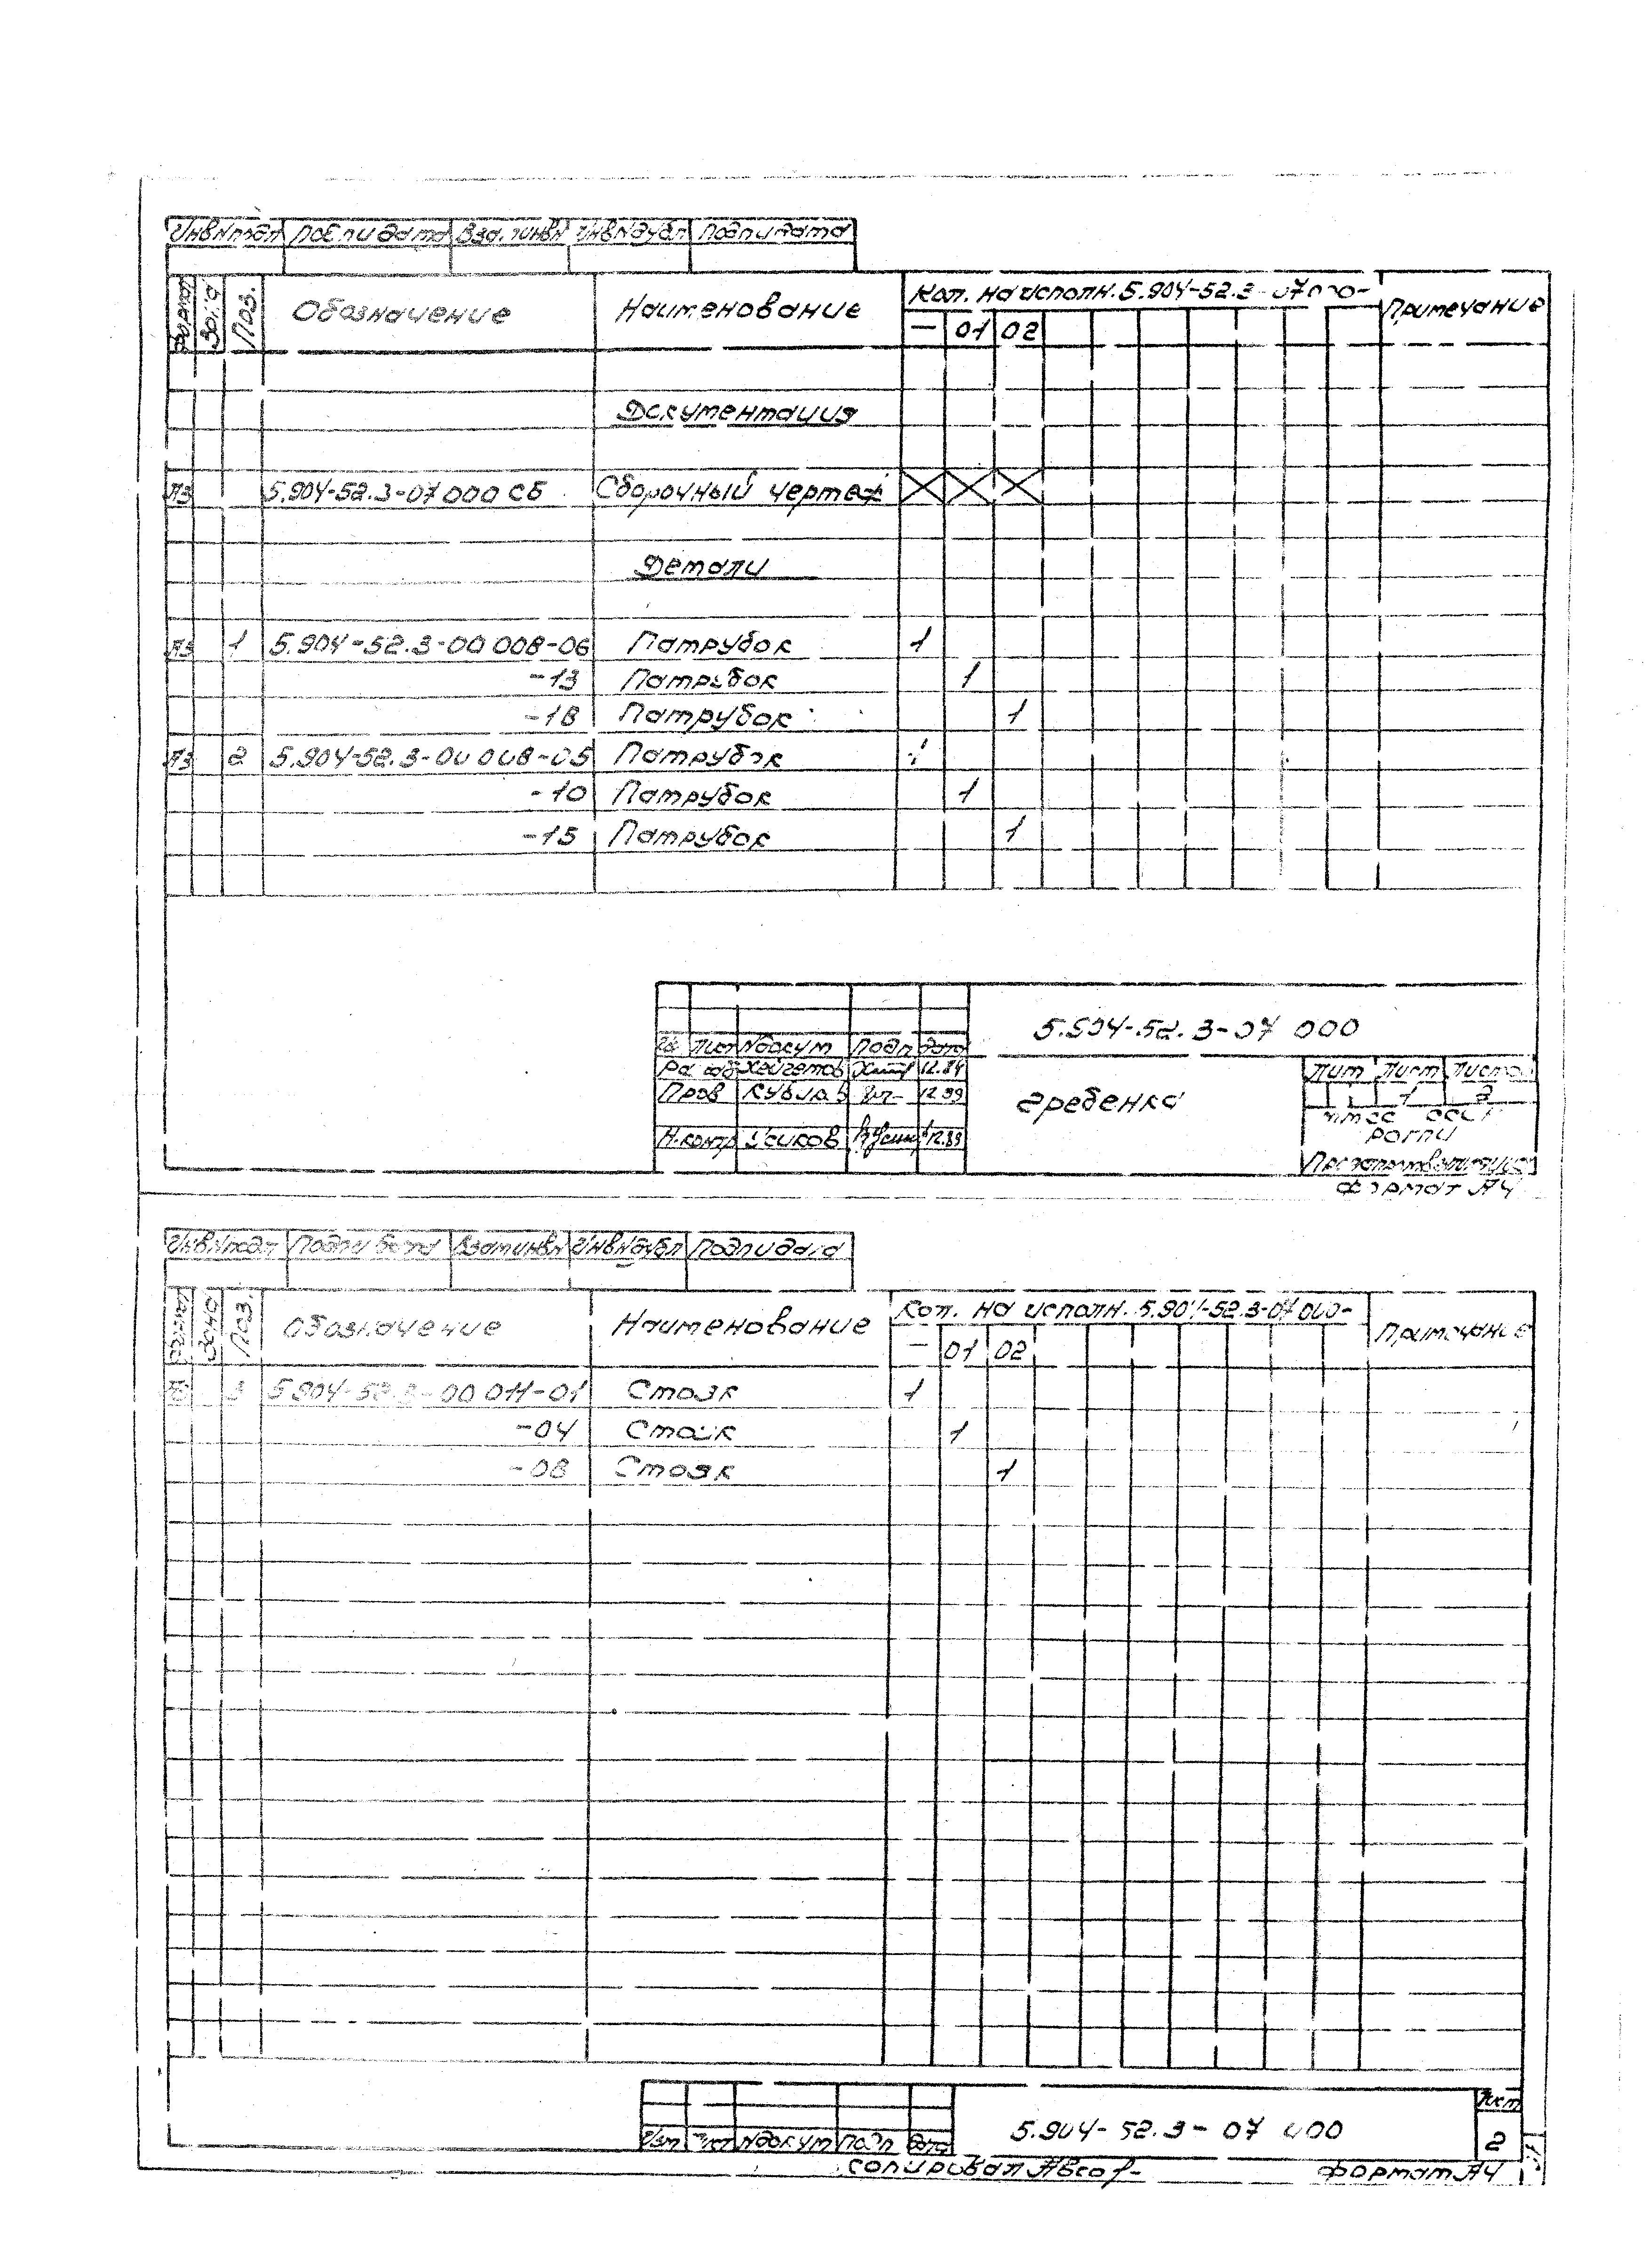 Инв№подл Подп и дата Взам.инв№ Инв№дубл Подп и дата
Формат Зона Поз. Обозначение Наименование Кол. на исполн. 5.904-52.3-07000- Примечание
— 01 02
Документация
А3 5.904-52.3-07 000 СБ Сборочный чертеж
Детали
А3 1 5.904-52.3-00 008-06 Патрубок 1
-13 Патрубок 1
-18 Патрубок 1
А3 2 5.904-52.3-00 008-05 Патрубок 1
-10 Патрубок 1
-15 Патрубок 1
5.904-52.3-07 000
Лист №докум Подп Дата
Хейгетов 12.89
Пров 12.89
Н.контр Усиков 12.89
гребенка
Лит Лист Листов
1 2
формат А4
Инв№подл Подп и дата Взам инв№ Инв№дубл Подп и дата
Формат Зона Поз. Обозначение Наименование Кол. на исполн. 5.904-52.3-07 000- Примечание
— 01 02
А3 3 5.904-52.3-00 011-01 Стояк 1
-04 Стояк 1
-08 Стояк 1
Изм Лист №докум Подп Дата
5.904-52.3-07 000
Лист
2
Копировал формат А4